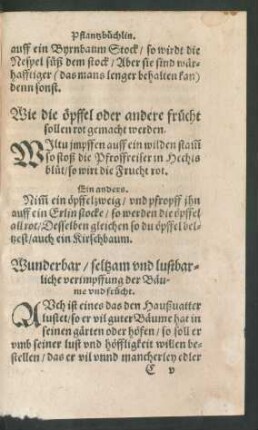 Pflantzbüchlin.
auff ein Byrnbaum Stock / so wirdt die
Nespel süß dem stock / Aber sie sind wär-
hafftiger (das mans lenger behalten kan)
denn sonst.
Wie die öpffel oder andere frücht
sollen rot gemacht werden.
WIltu impffen auff ein wilden stam̄
so stoß die Pfroffreiser in Hechts
blüt / so wirt die Frucht rot.
Ein anders.
Nim̄ ein öpffelzweig / vnd pfropff jhn
auff ein Erlin stocke / so werden die öpffel
all rot / Desselben gleichen so du öpffel bel-
tzest / auch ein Kirschbaum.
Wunderbar / seltzam vnd lustbar-
liche verimpffung der Bäu-
me vnd frücht.
AVch ist eines das den Haußuatter
lustet / so er vil guter Bäume hat in
seinen gärten oder höfen / so soll er
vmb seiner lust vnd höffligkeit willen be-
stellen / das er vil vnnd mancherley edler
C v